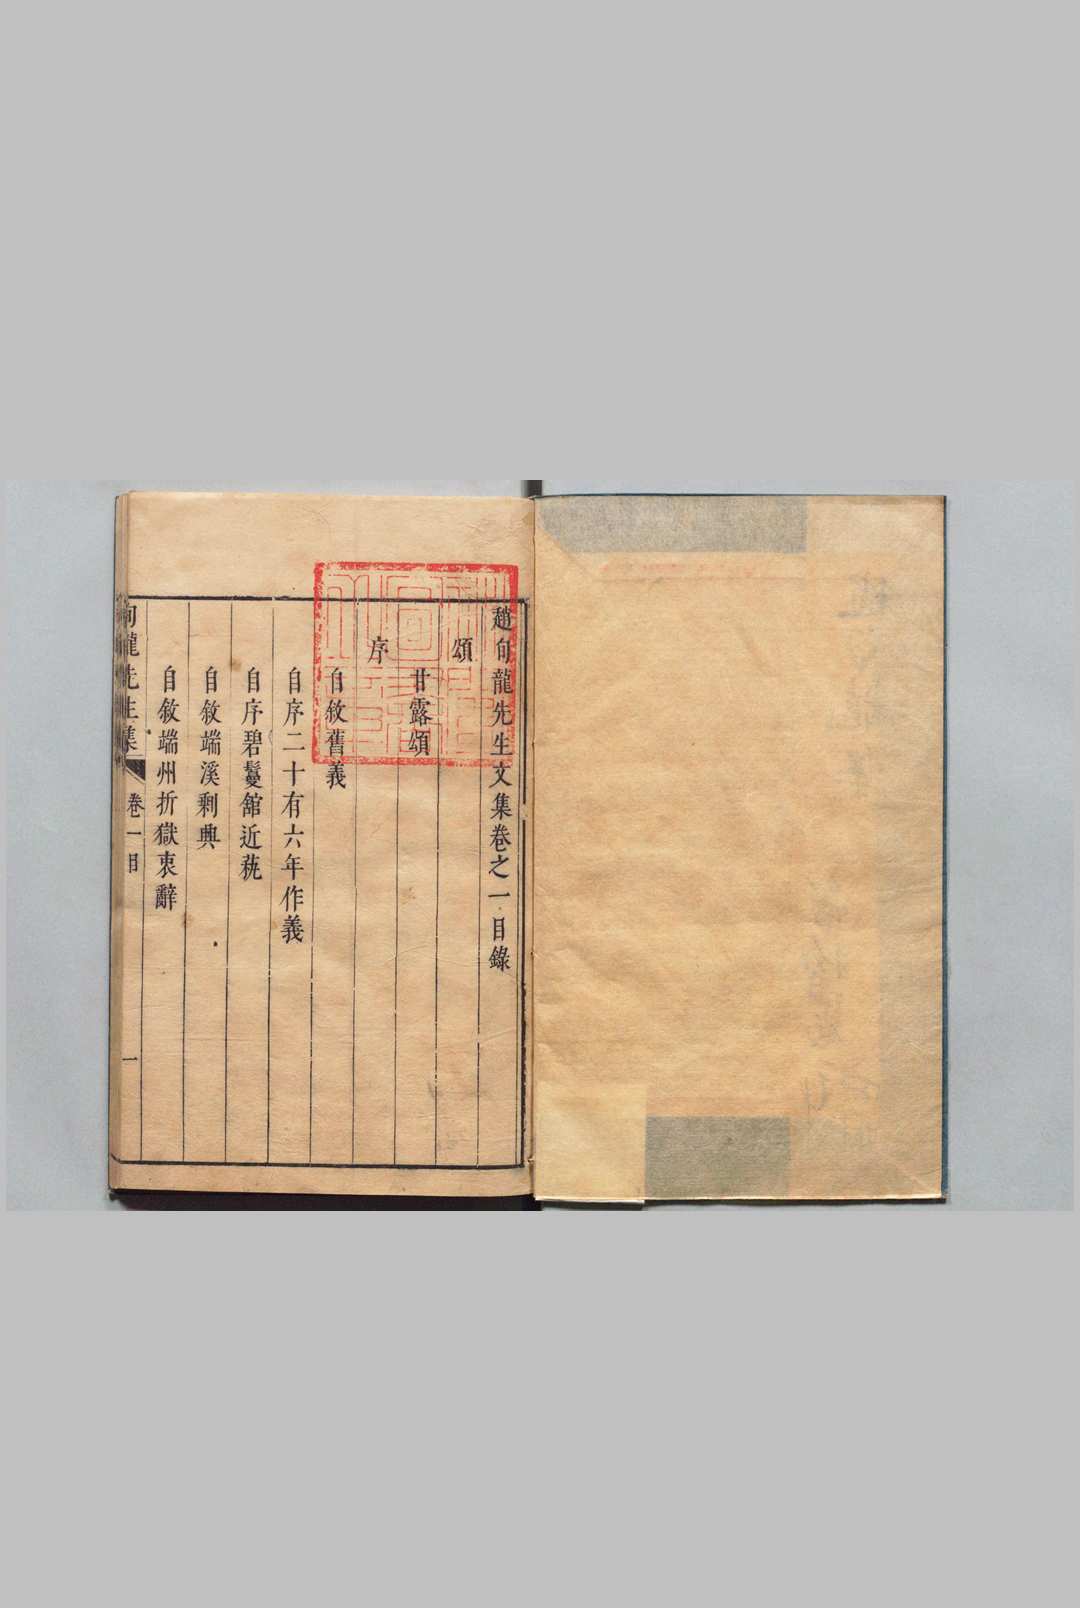 趙旬龍先生文集卷之一目錄
頌
甘露頌
序
自敘舊義
自序二十有六年作義
自序碧鬘舘近秇
自敘端溪剩興
自敘端州折獄衷辭
旬龍先生集
卷一目
一